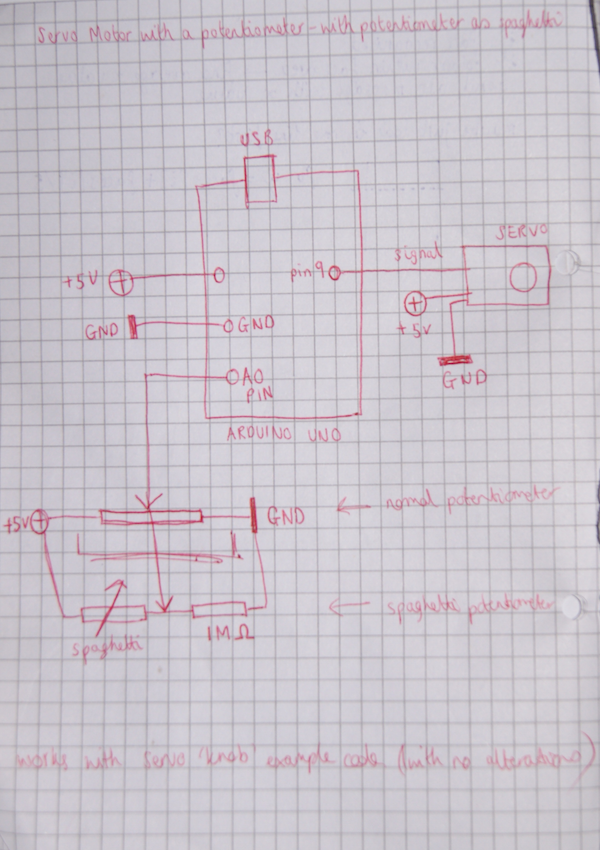 Servo Motor with a potentiometer - with potentiometer as spaghetti
USB
SERVO
signal
pin 9
+5V
+5V
GND
GND
A0
PIN
GND
ARDUINO UNO
+5V
GND
← normal potentiometer
← spaghetti potentiometer
1MΩ
spaghetti
works with servo 'knob' example code (with no alterations)